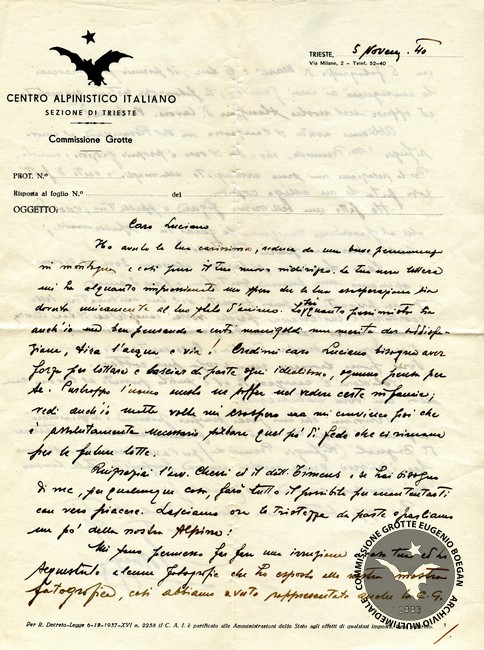 TRIESTE, 5 Novem. 40
Via Milano, 2 – Telef. 52-40
CENTRO ALPINISTICO ITALIANO
SEZIONE DI TRIESTE
Commissione Grotte
PROT. N.º
Risposta al foglio N.º del
OGGETTO:
Caro Luciano
Ho avuto la tua carissima, reduce da una buona permanenza
in montagna e così pure il tuo nuovo indirizzo. La tua vera lettera
mi ha alquanto impressionato ma spero che la tua esasperazione sia
dovuta unicamente al tuo stato d'animo. Quanto pessimista sia
anch'io ma ben pensando a certi manigoldi non merita dar soddisfa-
zione, tira l'acqua e via! Credimi caro Luciano bisogna aver
forza per lottare e lasciar da parte ogni idealismo, ognuno pensa per
sè. Purtroppo l'uomo onesto ne soffre nel vedere certe infamie;
vedi anch'io molte volte mi esaspero ma mi convinco poi che
è assolutamente necessario serbare quel po' di fede che ci rimane
per le future lotte.
Ringrazia l'avv. Chersi ed il dott. Timeus, se hai bisogno
di me, per qualunque cosa, farò tutto il possibile per accontentarti
con vero piacere. Lasciamo ora le tristezze da parte e parliamo
un po' della nostra Alpina!
Mi sono permesso far fare una irruzione casa tua ed ho
sequestrato alcune fotografie che ho esposto alla nostra mostra
fotografica, così abbiamo avuto rappresentato anche la C.G.
Per R. Decreto-Legge 6-12-1937-XVI n. 2258 il C. A. I. è parificato alle Amministrazioni dello Stato agli effetti di qualsiasi imposta
COMMISSIONE GROTTE EUGENIO BOEGAN
ARCHIVIO MULTIMEDIALE
1883